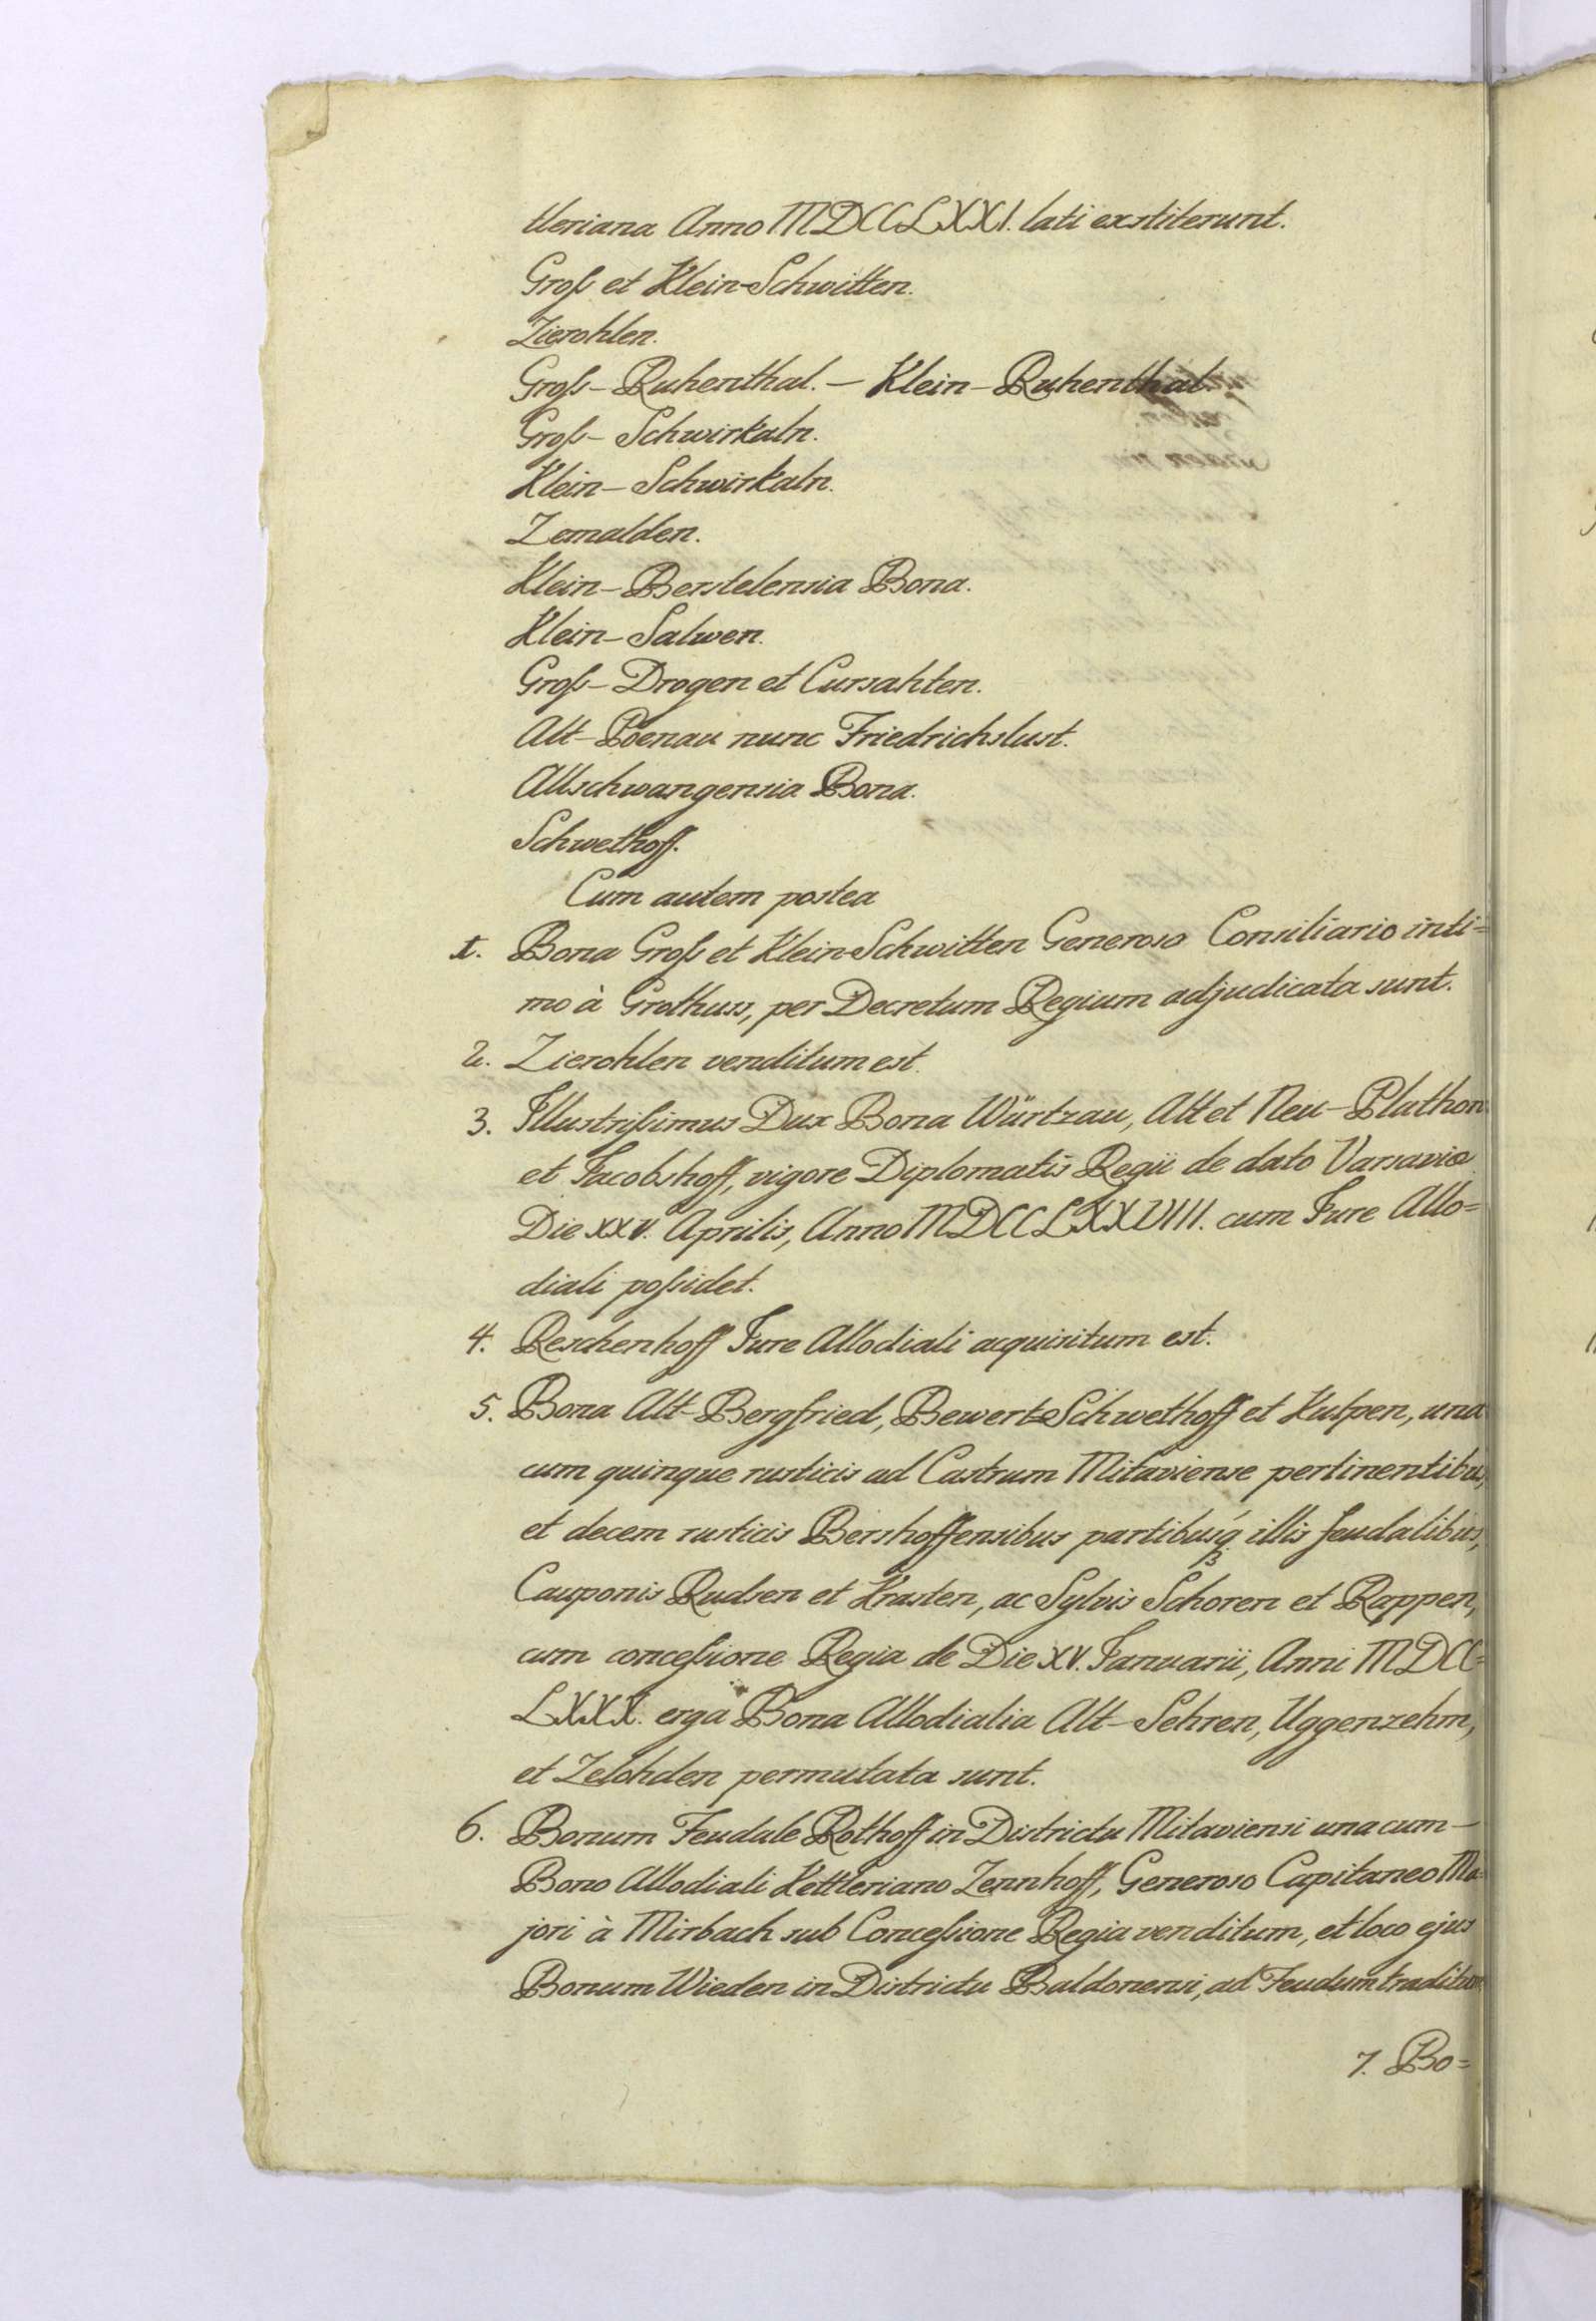 tleriana Anno MDCCLXXI. lati exstiterunt.
Groß et Klein-Schwitten.
Zierohlen.
Groß-Ruhenthal. — Klein-Ruhenthal.
Groß-Schwirkaln.
Klein-Schwirkaln.
Zemalden.
Klein-Berstelensia Bona.
Klein-Salwen.
Groß-Drogen et Cursahten.
Alt-Poenau nunc Friedrichslust.
Allschwangensia Bona.
Schwethoff.
Cum autem postea
1. Bona Groß et Klein-Schwitten Generoso Consiliario inti=
mo à Grothuss, per Decretum Regium adjudicata sunt.
2. Zierohlen venditum est.
3. Illustrißimus Dux Bona Würtzau, Alt et Neu-Plathon
et Jacobshoff, vigore Diplomatis Regii de dato Varsavia
Die XXV. Aprilis, Anno MDCCLXXVIII. cum Jure Allo=
diali poßidet.
4. Reschenhoff Jure Allodiali acquisitum est.
5. Bona Alt-Bergfried, Bewert-Schwethoff et Kulpen, una
cum quinque rusticis ad Castrum Mitaviense pertinentibus,
et decem rusticis Bershoffensibus partibusq́ illis feudalibus,
Cauponis Rudsen et Krasten, ac Sylvis Schoren et Rappen,
cum conceßione Regia de Die XV. Januarii, Anni MDCC=
LXXX. erga Bona Allodialia Alt-Sehren, Uggenzehm,
et Zelohden permutata sunt.
6. Bonum Feudale Rothoff in Districtu Mitaviensi una cum —
Bono Allodiali Kettleriano Zennhoff, Generoso Capitaneo Ma=
jori à Mirbach sub Conceßione Regia venditum, et loco ejus
Bonum Wieden in Districtu Baldonensi, ad Feudum traditum
7. Bo=